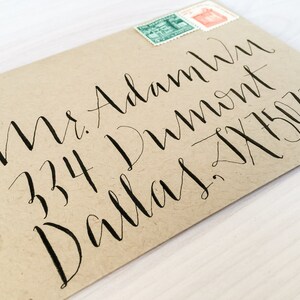 Mr. Adam Wu
334 Dumont
Dallas, TX